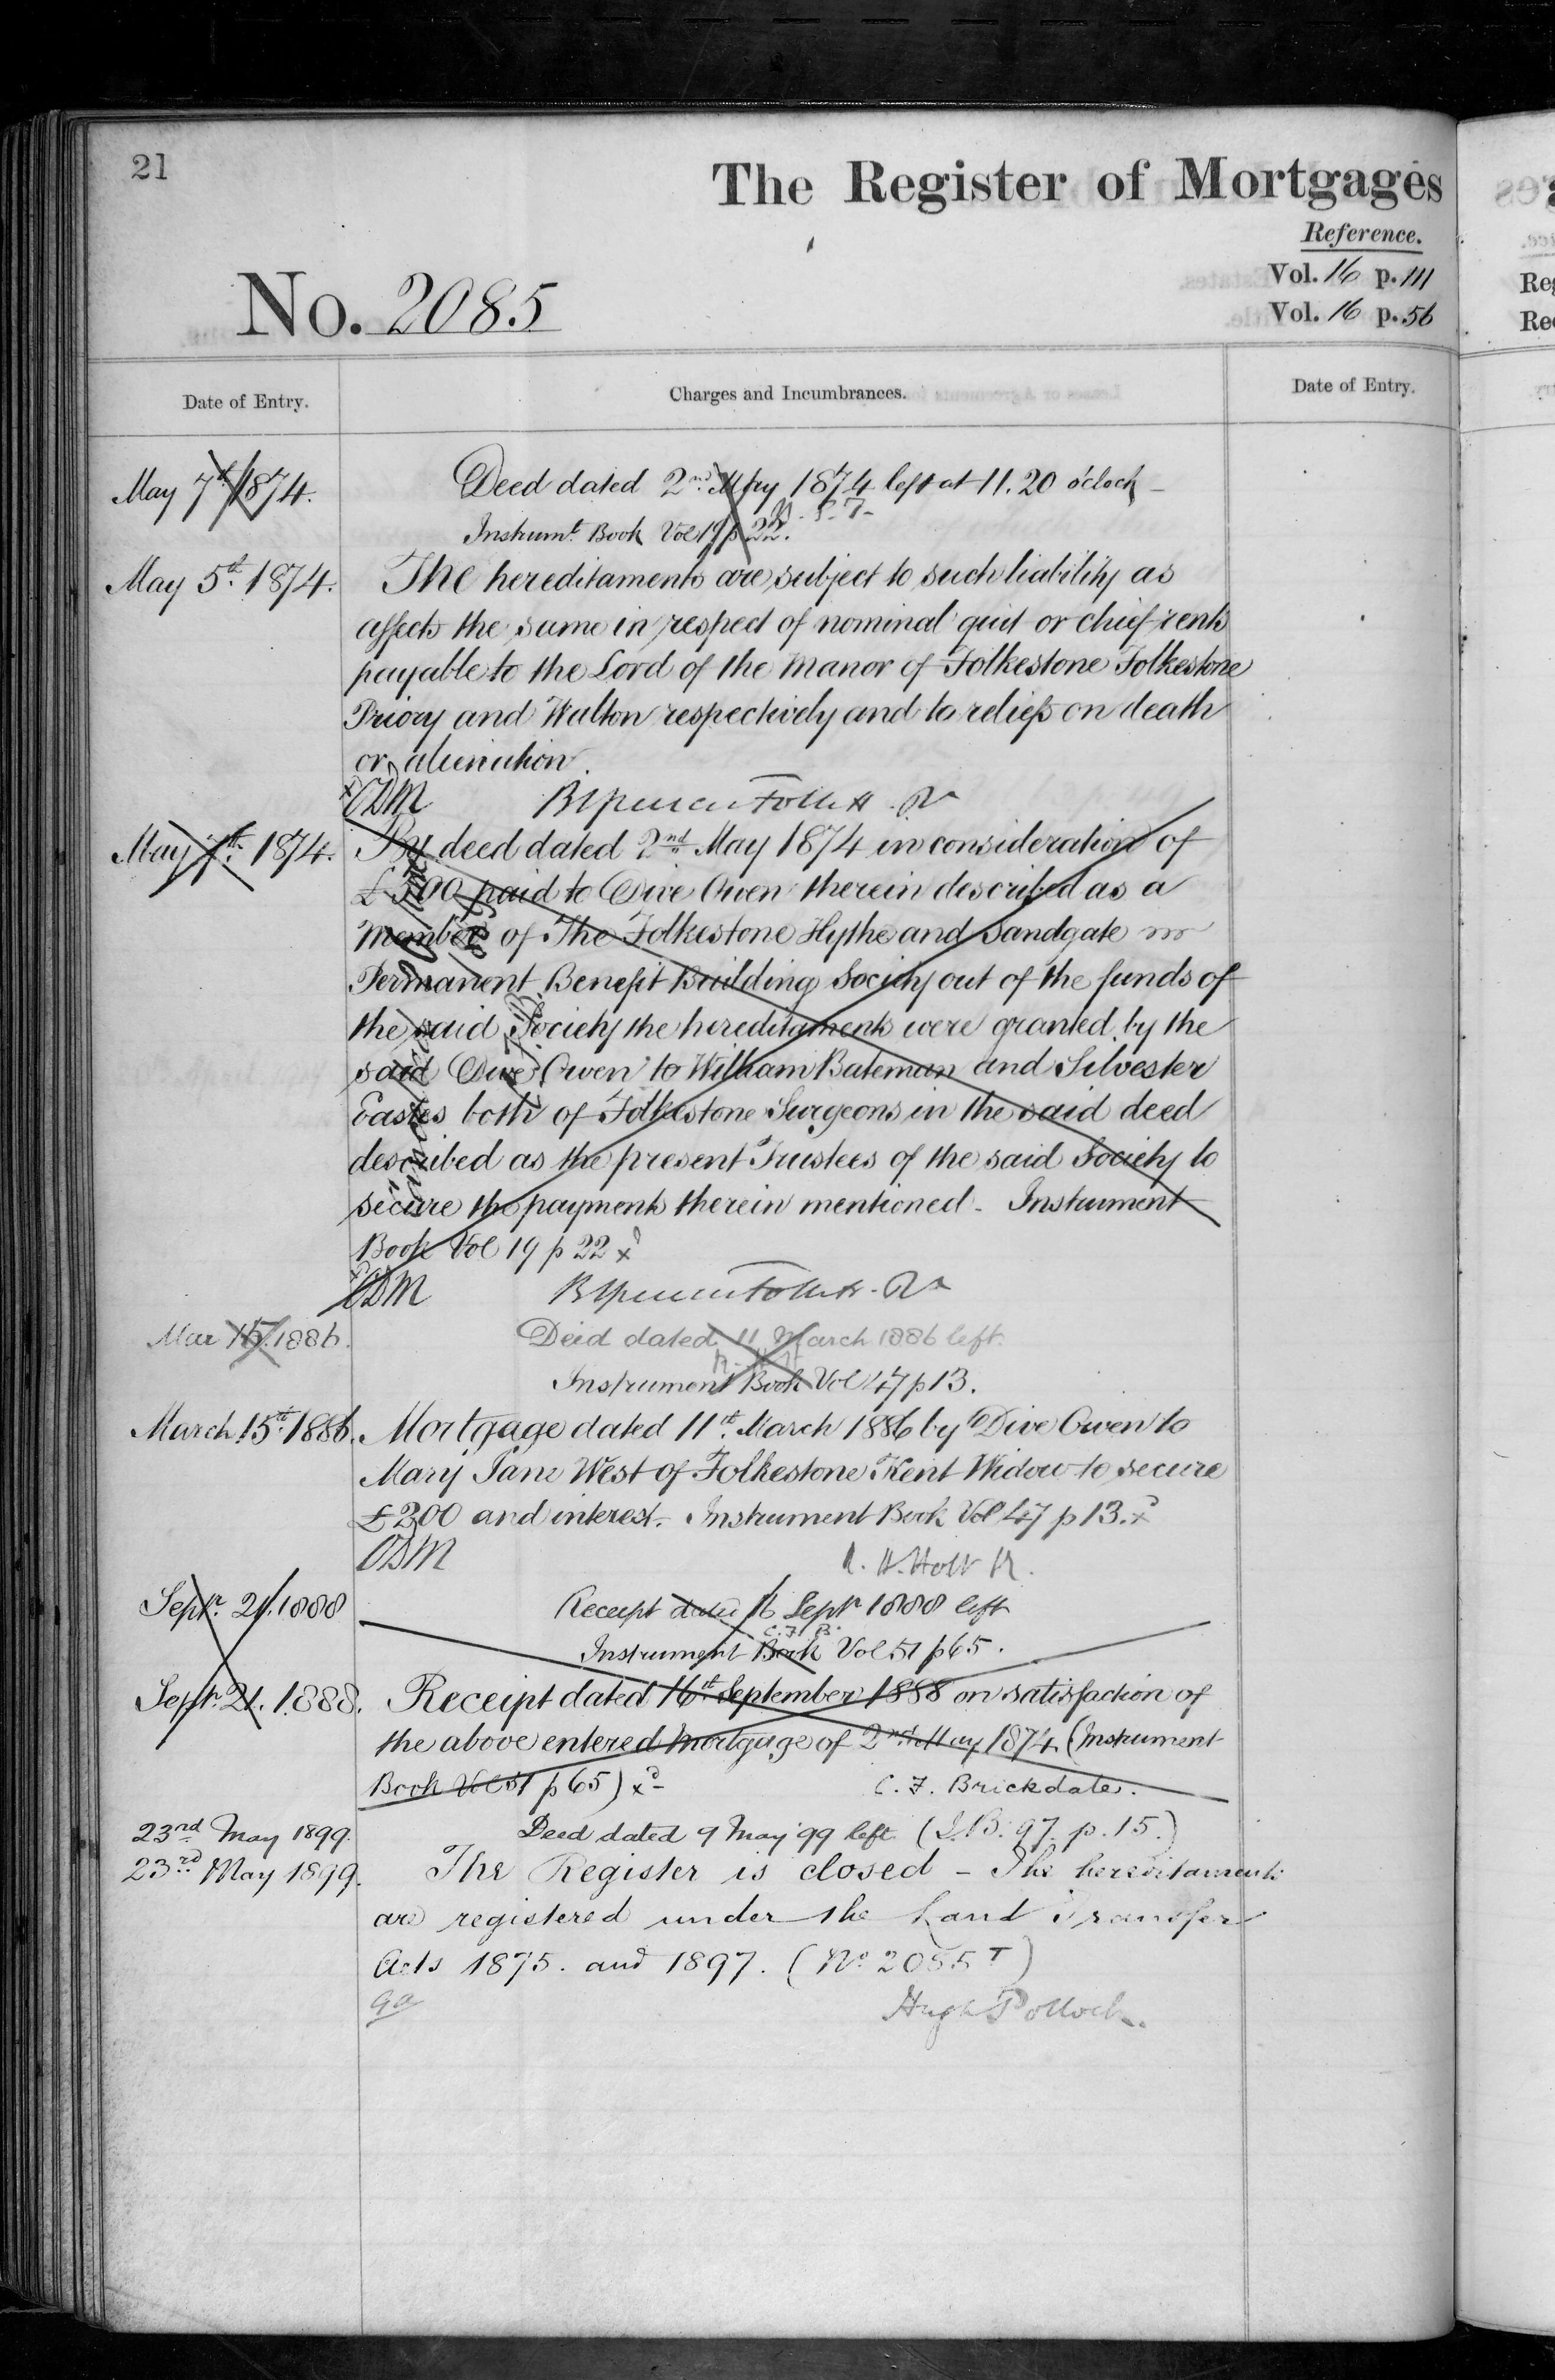 21
The Register of Mortgages
Reference.
Vol. 16 p. 111
No. 2085
Vol. 16 p. 56
Date of Entry.
Charges and Incumbrances.
Date of Entry.
May 7th 1874.
Deed dated 2nd May 1874 left at 11.20 o'clock -
Instrumt. Book Vol 19 p 22.
May 5th. 1874.
The hereditaments are subject to such liability as
affects the same in respect of nominal quit or chief rents
payable to the Lord of the Manor of Folkestone Folkestone
Priory and Walton respectively and to reliefs on death
or alienation.
ODM
May 7th. 1874.
By deed dated 2nd May 1874 in consideration of
£300 paid to Dive Owen therein described as a
Member of The Folkestone Hythe and Sandgate
Permanent Benefit Building Society out of the funds of
the said Society the hereditaments were granted by the
said Dive Owen to William Bateman and Silvester
Eastes both of Folkestone Surgeons in the said deed
described as the present Trustees of the said Society to
secure the payments therein mentioned - Instrument
Book Vol 19 p 22 xd
ODM
Mar 15. 1886.
Deed dated 11 March 1886 left.
Instrument Book Vol 47 p 13.
March 15th 1886.
Mortgage dated 11th. March 1886 by Dive Owen to
Mary Jane West of Folkestone Kent Widow to secure
£200 and interest. Instrument Book Vol 47 p 13. xd
ODM
R. H. Holt R.
Septr. 21. 1888
Receipt dated 16 Septr 1888 left
C.F.B.
Instrument Book Vol 51 p 65.
Septr. 21. 1888.
Receipt dated 16th September 1888 on satisfaction of
the above entered Mortgage of 2nd May 1874 (Instrument
Book Vol 51 p 65) xd -
C. F. Brickdale.
23rd May 1899.
Deed dated 9 May '99 left. (I.B. 97. p. 15.)
23rd May 1899.
The Register is closed - The hereditaments
are registered under the Land Transfer
Acts 1875. and 1897. (No 2085 T)
Hugh Pollock.